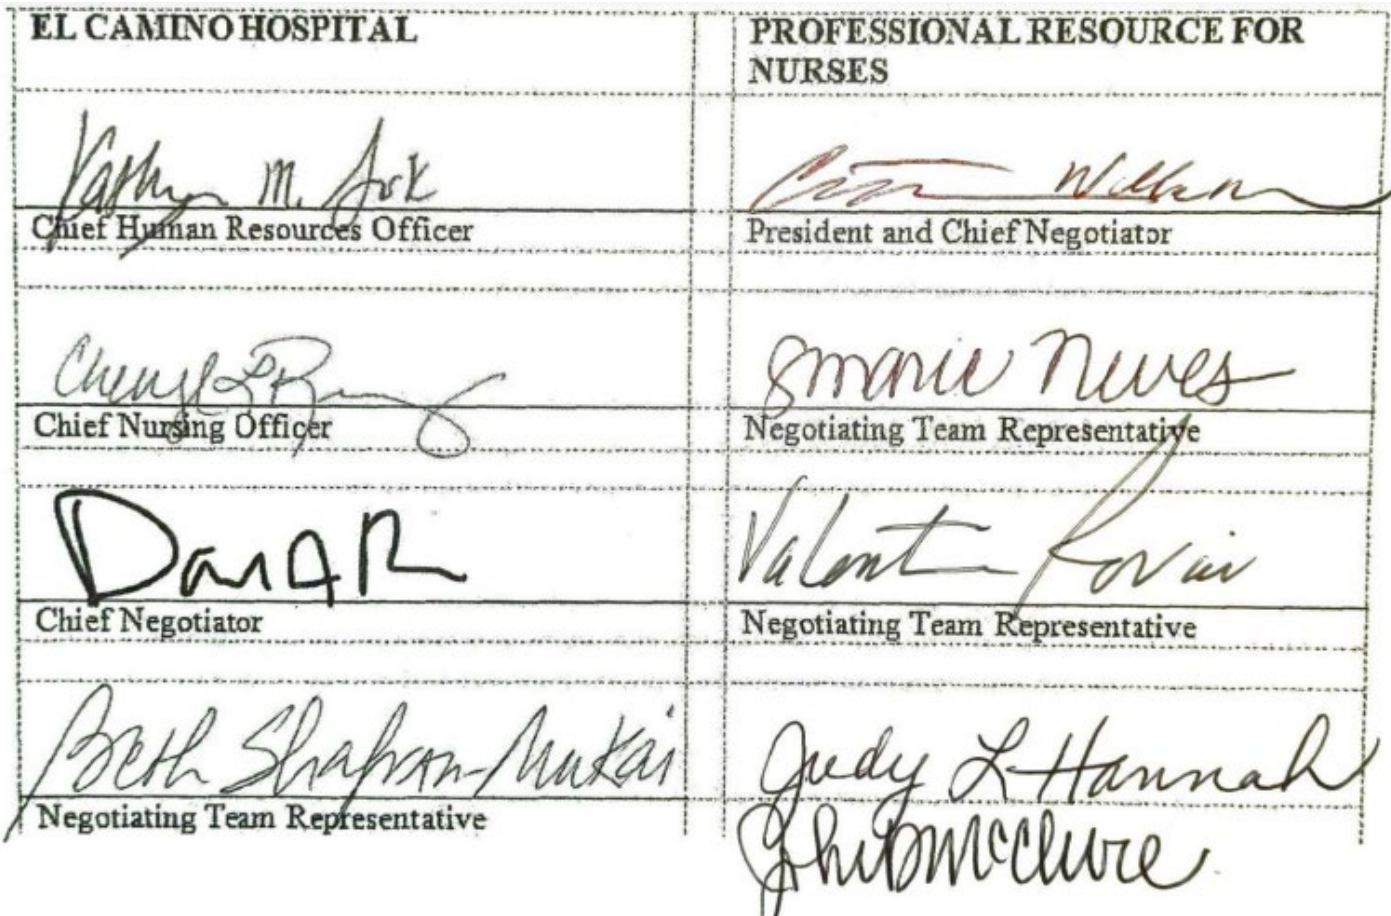 EL CAMINO HOSPITAL
PROFESSIONAL RESOURCE FOR
NURSES
Kathryn M. Fisk
Chief Human Resources Officer
Williams
President and Chief Negotiator
Cheryl L
Chief Nursing Officer
Negotiating Team Representative
Chief Negotiator
Valentin
Negotiating Team Representative
Beth Shafran-Mukai
Negotiating Team Representative
Judy L Hannah
McClure